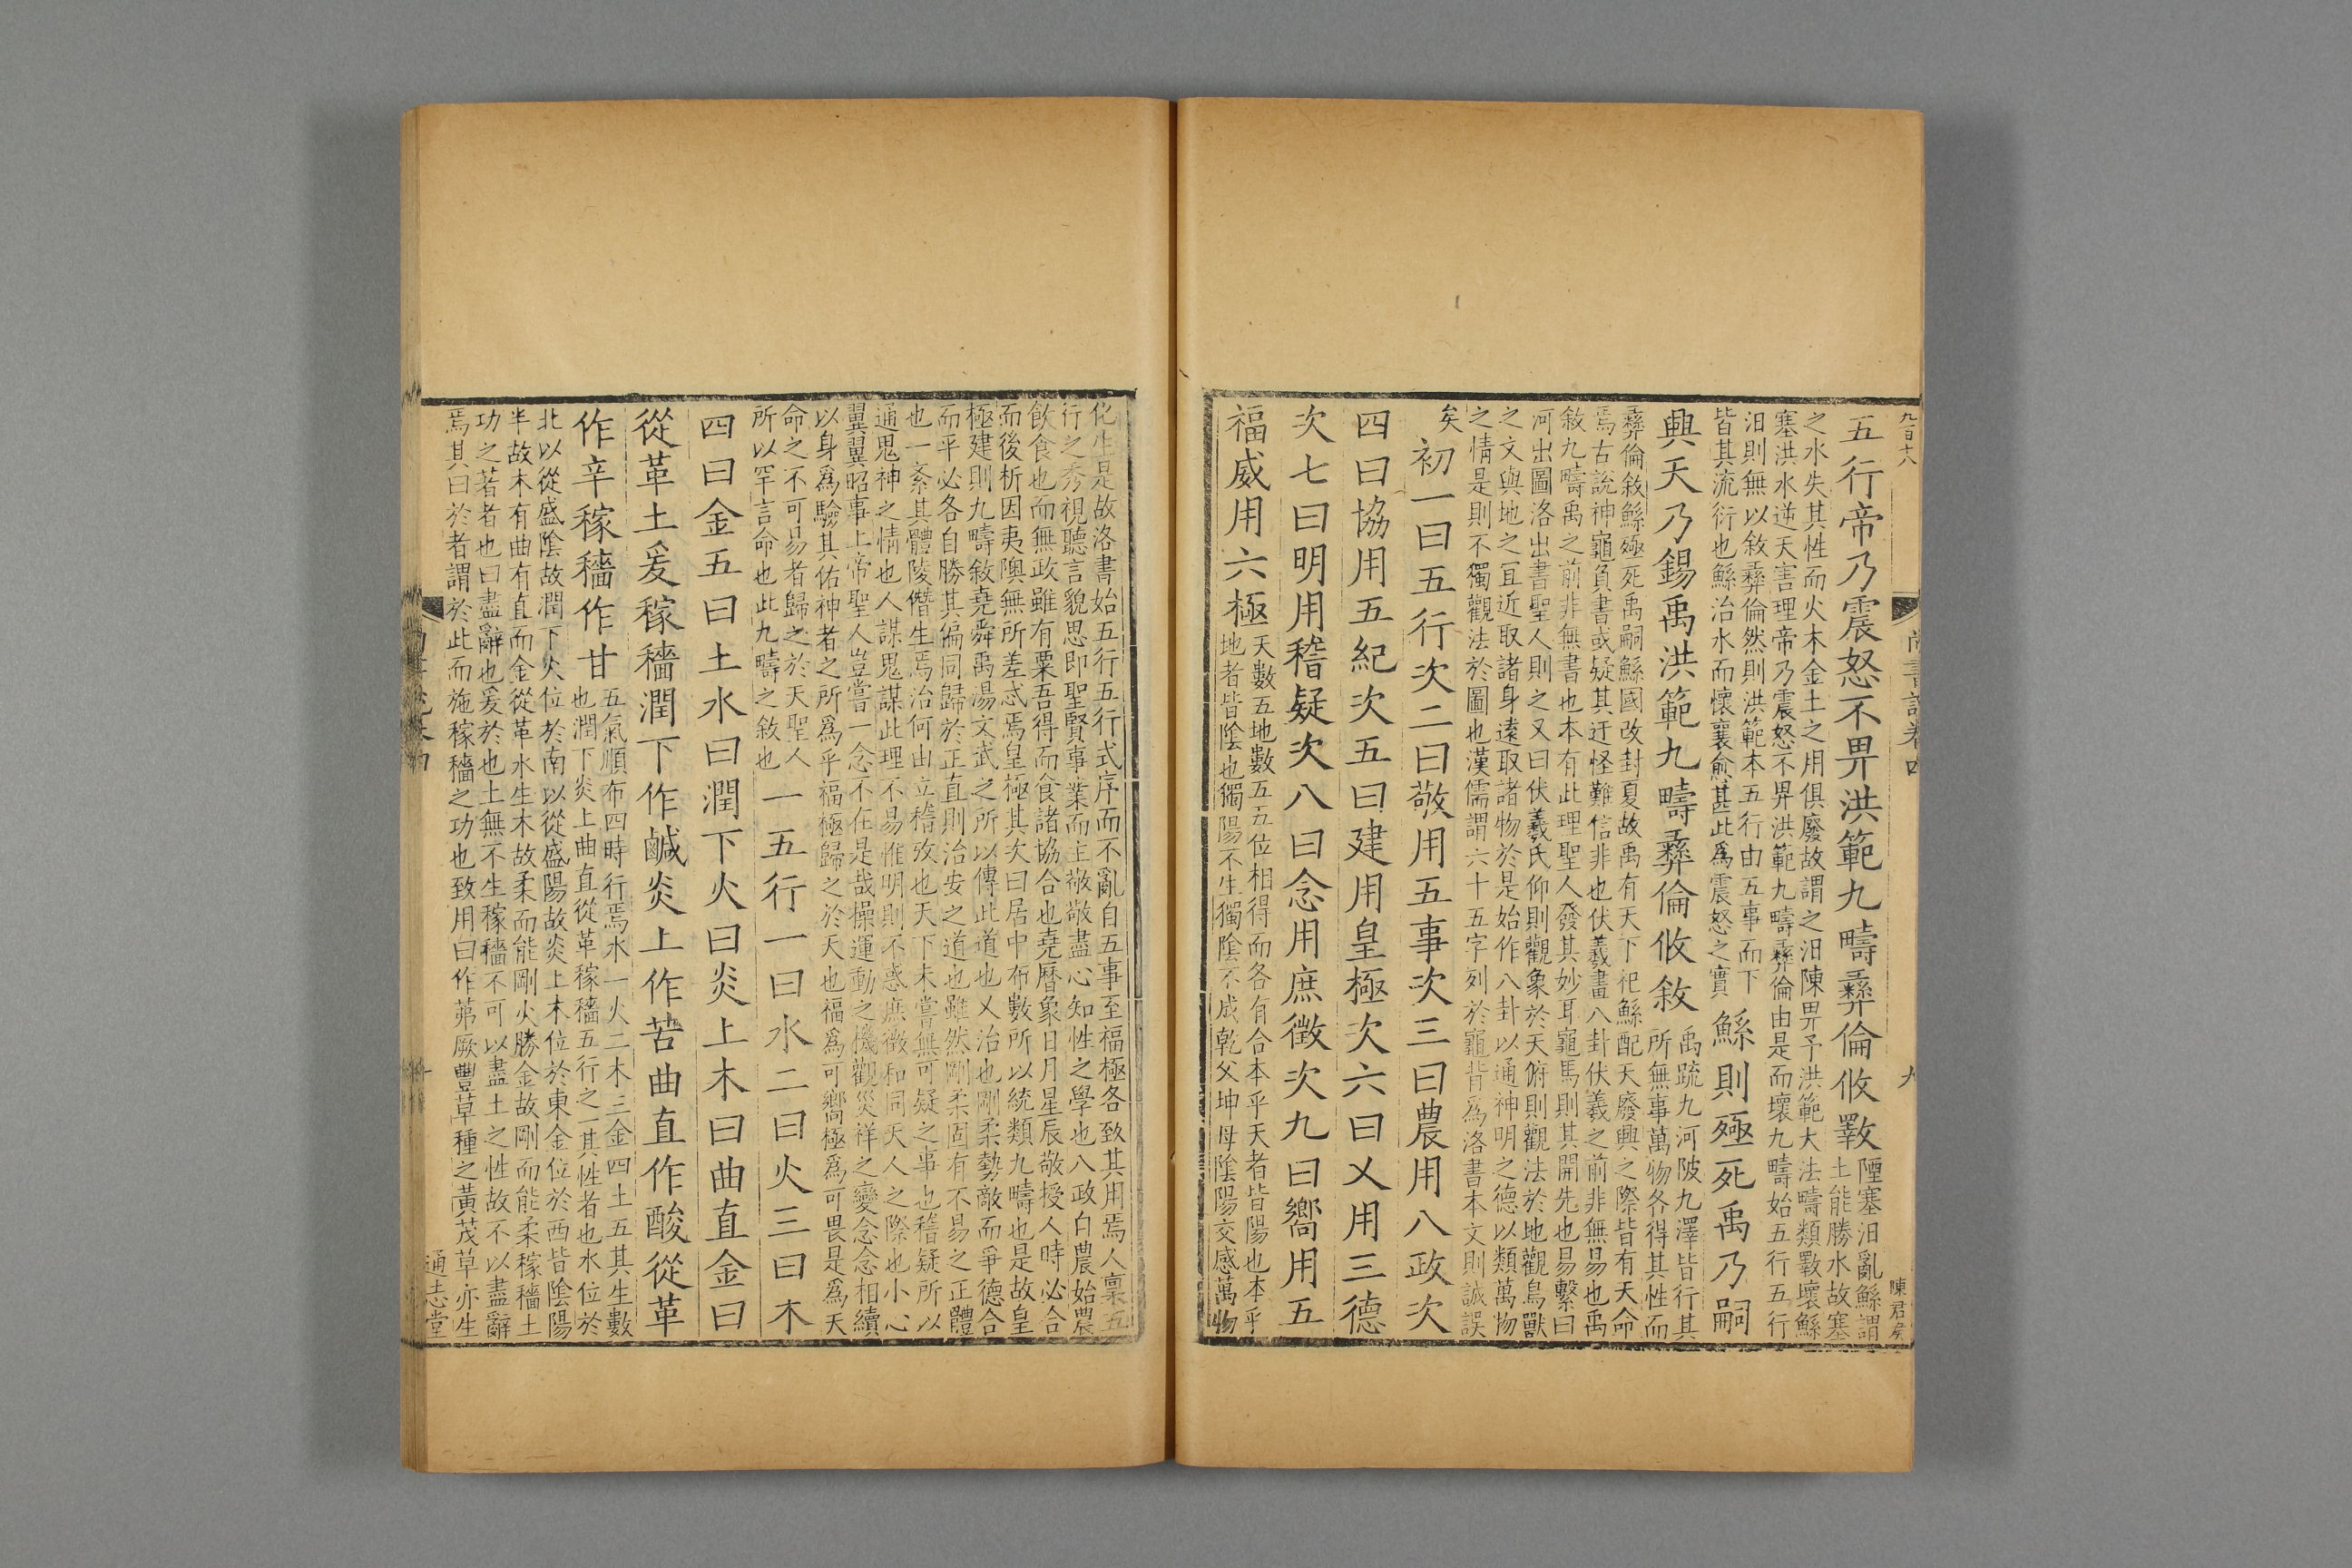 九百十八
尚書說卷四
九
陳君矣
五行帝乃震怒不畀洪範九疇彝倫攸斁
陻塞汩亂鯀謂
土能勝水故塞
之水失其性而火木金土之用俱廢故謂之汩陳畀予洪範大法疇類斁壞鯀
塞洪水逆天害理帝乃震怒不畀洪範九疇彝倫由是而壞九疇始五行五行
汩則無以敘彝倫然則洪範本五行由五事而下
皆其流衍也鯀治水而懷襄愈甚此爲震怒之實
鯀則殛死禹乃嗣
興天乃錫禹洪範九疇彝倫攸敘
禹疏九河陂九澤皆行其
所無事萬物各得其性而
彝倫敘鯀殛死禹嗣鯀國改封夏故禹有天下祀鯀配天廢興之際皆有天命
焉古說神龜負書或疑其迂怪難信非也伏羲畫八卦伏羲之前非無易也禹
敘九疇禹之前非無書也本有此理聖人發其妙耳龜馬則其開先也易繫曰
河出圖洛出書聖人則之又曰伏羲氏仰則觀象於天俯則觀法於地觀鳥獸
之文與地之宜近取諸身遠取諸物於是始作八卦以通神明之德以類萬物
之情是則不獨觀法於圖也漢儒謂六十五字列於龜背爲洛書本文則誠誤
矣
初一曰五行次二曰敬用五事次三曰農用八政次
四曰協用五紀次五曰建用皇極次六曰乂用三德
次七曰明用稽疑次八曰念用庶徵次九曰嚮用五
福威用六極
天數五地數五五位相得而各有合本乎天者皆陽也本乎
地者皆陰也獨陽不生獨陰不成乾父坤母陰陽交感萬物
化生是故洛書始五行五行式序而不亂自五事至福極各致其用焉人稟五
行之秀視聽言貌思即聖賢事業而主敬敬盡心知性之學也八政自農始農
飲食也而無政雖有粟吾得而食諸協合也堯曆象日月星辰敬授人時必合
而後析因夷隩無所差忒焉皇極其次曰居中布數所以統類九疇也是故皇
極建則九疇敘堯舜禹湯文武之所以傳此道也乂治也剛柔勢敵而爭德合
而平必各自勝其偏同歸於正直則治安之道也雖然剛柔固有不易之正體
也一紊其體陵僭生焉治何由立稽攷也天下未嘗無可疑之事也稽疑所以
通鬼神之情也人謀鬼謀此理不易惟明則不惑庶徵和同天人之際也小心
翼翼昭事上帝聖人豈嘗一念不在是哉操運動之機觀災祥之變念念相續
以身爲驗其佑神者之所爲乎福極歸之於天也福爲可嚮極爲可畏是爲天
命之不可易者歸之於天聖人
所以罕言命也此九疇之敘也
一五行一曰水二曰火三曰木
四曰金五曰土水曰潤下火曰炎上木曰曲直金曰
從革土爰稼穡潤下作鹹炎上作苦曲直作酸從革
作辛稼穡作甘
五氣順布四時行焉水一火二木三金四土五其生數
也潤下炎上曲直從革稼穡五行之一其性者也水位於
北以從盛陰故潤下火位於南以從盛陽故炎上木位於東金位於西皆陰陽
半故木有曲有直而金從革水生木故柔而能剛火勝金故剛而能柔稼穡土
功之著者也曰盡辭也爰於也土無不生稼穡不可以盡土之性故不以盡辭
焉其曰於者謂於此而施稼穡之功也致用曰作茀厥豐草種之黃茂草亦生
通志堂